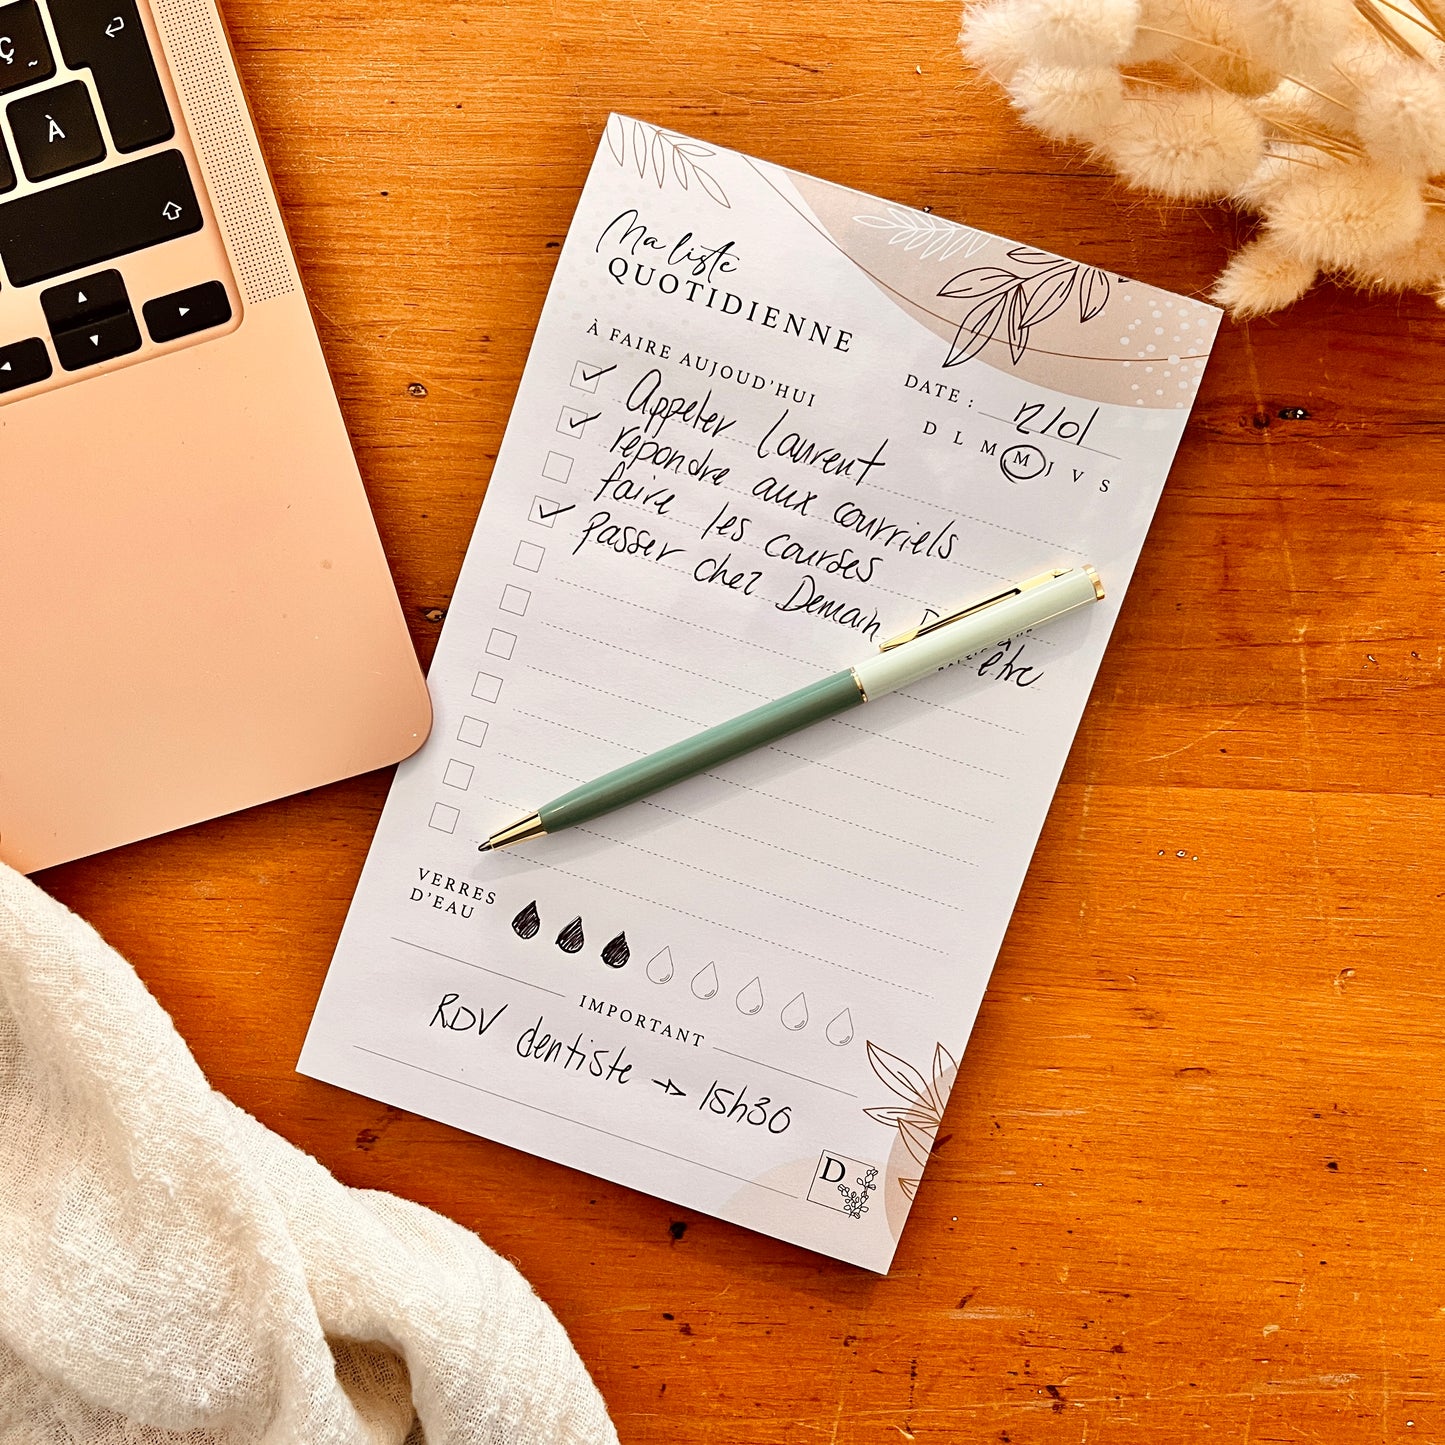 Ç
À
Ma liste
QUOTIDIENNE
À FAIRE AUJOUD'HUI
DATE : 12/01
D L M M J V S
Appeler Laurent
repondre aux courriels
faire les courses
Passer chez Demain
être
VERRES
D'EAU
IMPORTANT
RDV dentiste → 15h30
D